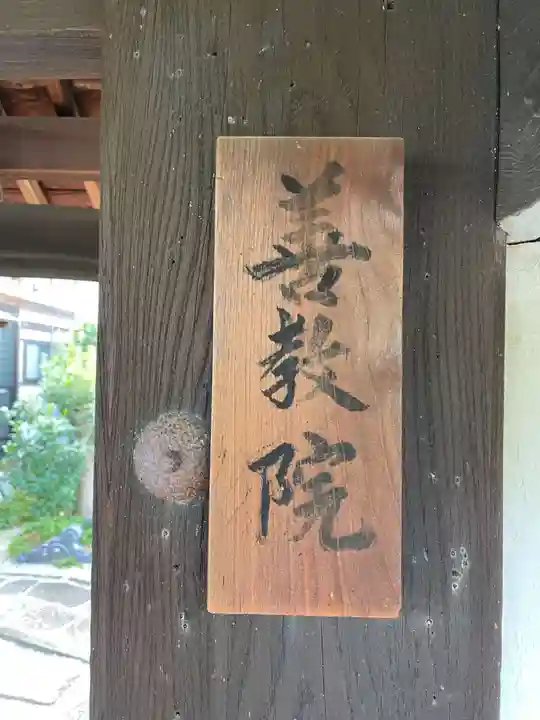 善教院